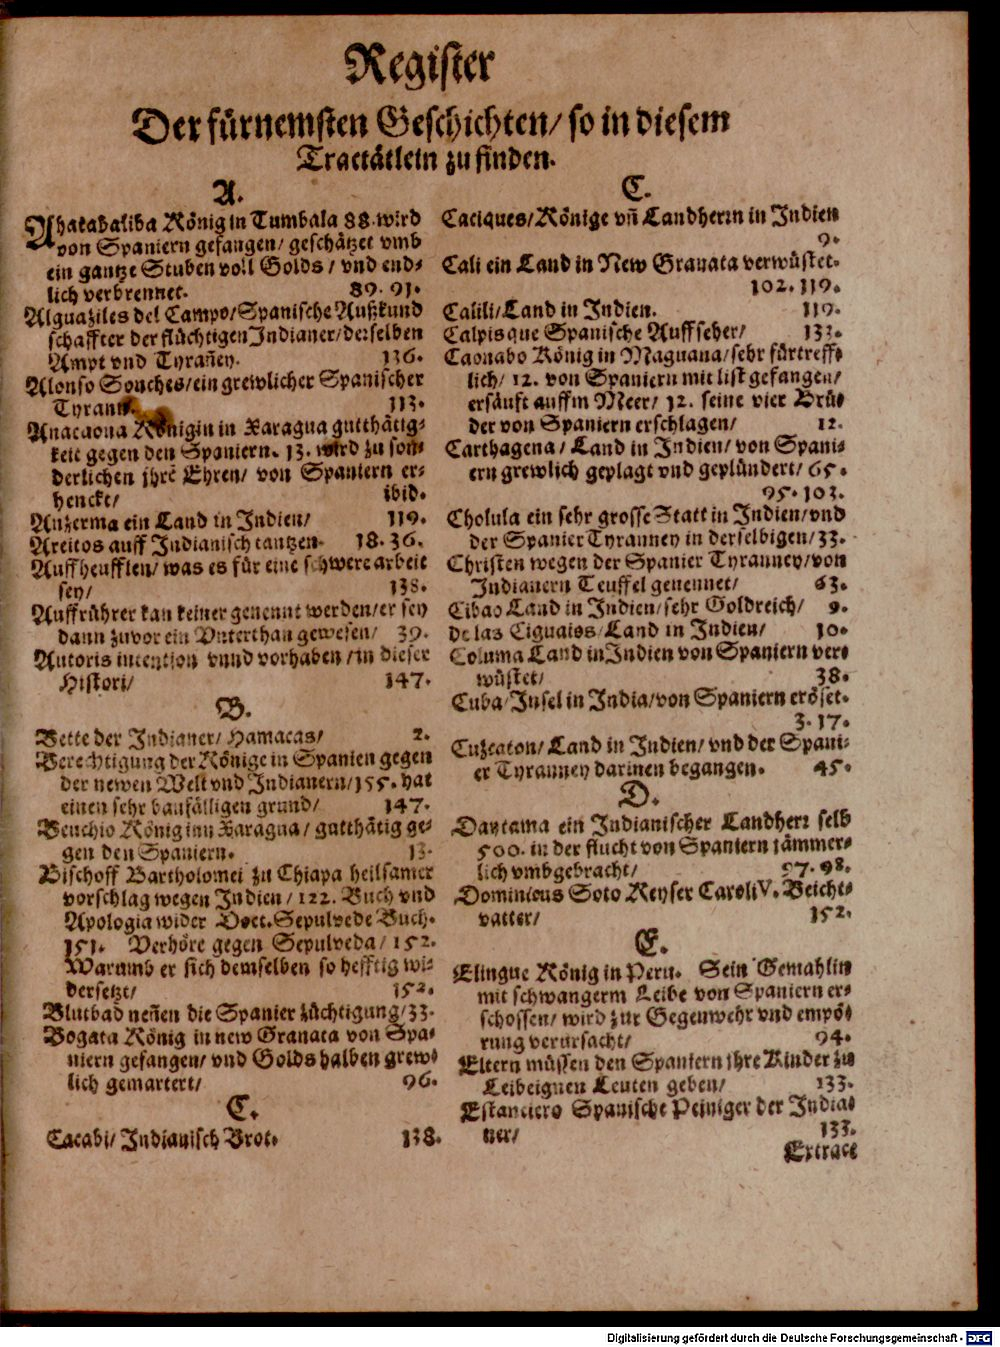 Register
Der fürnemsten Geschichten/ so in diesem
Tractätlein zu finden.
A.
Ahatabaliba König in Tumbala 88. wird
von Spaniern gefangen/ geschätzet vmb
ein gantze Stuben voll Golds/ vnd end-
lich verbrennet. 89. 91.
Alguaziles del Campo/Spanische Außkund
schaffter der flüchtigen Indianer/derselben
Ampt vnd Tyrañey. 136.
Alonso Sonches/ein grewlicher Spanischer
Tyrann. 113.
Anacaona Königin in Xaragua gutthätig-
keit gegen den Spaniern. 13. wird zu son-
derlichen jhrē Ehren/ von Spaniern er-
henckt/ ibid.
Anzerma ein Land in Indien/ 119.
Areitos auff Indianisch tantzen. 18. 36.
Auffheufflen/ was es für eine schwere arbeit
sey/ 138.
Auffrührer kan keiner genennt werden/er sey
dann zuvor ein Vnterthan gewesen/ 39.
Autoris intention vnnd vorhaben/in dieser
Histori/ 147.
B.
Bette der Indianer/ Hamacas/ 2.
Berechtigung der Könige in Spanien gegen
der newen Welt vnd Indianern/155. hat
einen sehr baufälligen grund/ 147.
Beuchio König inn Xaragua/ gutthätig ge-
gen den Spaniern. 13.
Bischoff Bartholomei zu Chiapa heilsamer
vorschlag wegen Indien/ 122. Buch vnd
Apologia wider Doct. Sepulvede Buch.
151. Verhöre gegen Sepulveda/ 152.
Warumb er sich demselben so hefftig wi-
dersetzt/ 152.
Blutbad neñen die Spanier züchtigung/33.
Bogata König in new Granata von Spa-
niern gefangen/ vnd Golds halben grew-
lich gemartert/ 96.
C.
Cacabi/ Indianisch Brot. 138.
C.
Caciques/Könige vñ Landherrn in Indien
9.
Cali ein Land in New Granata verwüstet.
102. 119.
Calili/Land in Indien. 119.
Calpisque Spanische Auffseher/ 133.
Caonabo König in Maguana/sehr fürtreff-
lich/ 12. von Spaniern mit list gefangen/
ersäuft auffm Meer/ 12. seine vier Brü-
der von Spaniern erschlagen/ 12.
Carthagena/ Land in Indien/ von Spani-
ern grewlich geplagt vnd geplündert/ 65.
95. 103.
Cholula ein sehr grosse Statt in Indien/vnd
der Spanier Tyranney in derselbigen/33.
Christen wegen der Spanier Tyranney/von
Indianern Teuffel genennet/ 63.
Cibao Land in Indien/sehr Goldreich/ 9.
de las Ciguaios/Land in Indien/ 10.
Columa Land in Indien von Spaniern ver-
wüstet/ 38.
Cuba/Insel in India/von Spaniern eröset.
3. 17.
Cuzcaton/ Land in Indien/ vnd der Spani-
er Tyranney darinen begangen. 45.
D.
Daytama ein Indianischer Landherr selb
500. in der flucht von Spaniern jämmer-
lich vmbgebracht/ 97. 98.
Dominicus Soto Keyser Caroli V. Beicht-
vatter/ 152.
E.
Elingue König in Peru. Sein Gemahlin
mit schwangerm Leibe von Spaniern er-
schossen/ wird zur Gegenwehr vnd empö-
rung verursacht/ 94.
Eltern müssen den Spaniern jhre Kinder zu
Leibeignen Leuten geben/ 133.
Estanciero Spanische Peiniger der India-
ner/ 133.
Extract
Digitalisierung gefördert durch die Deutsche Forschungsgemeinschaft - DFG